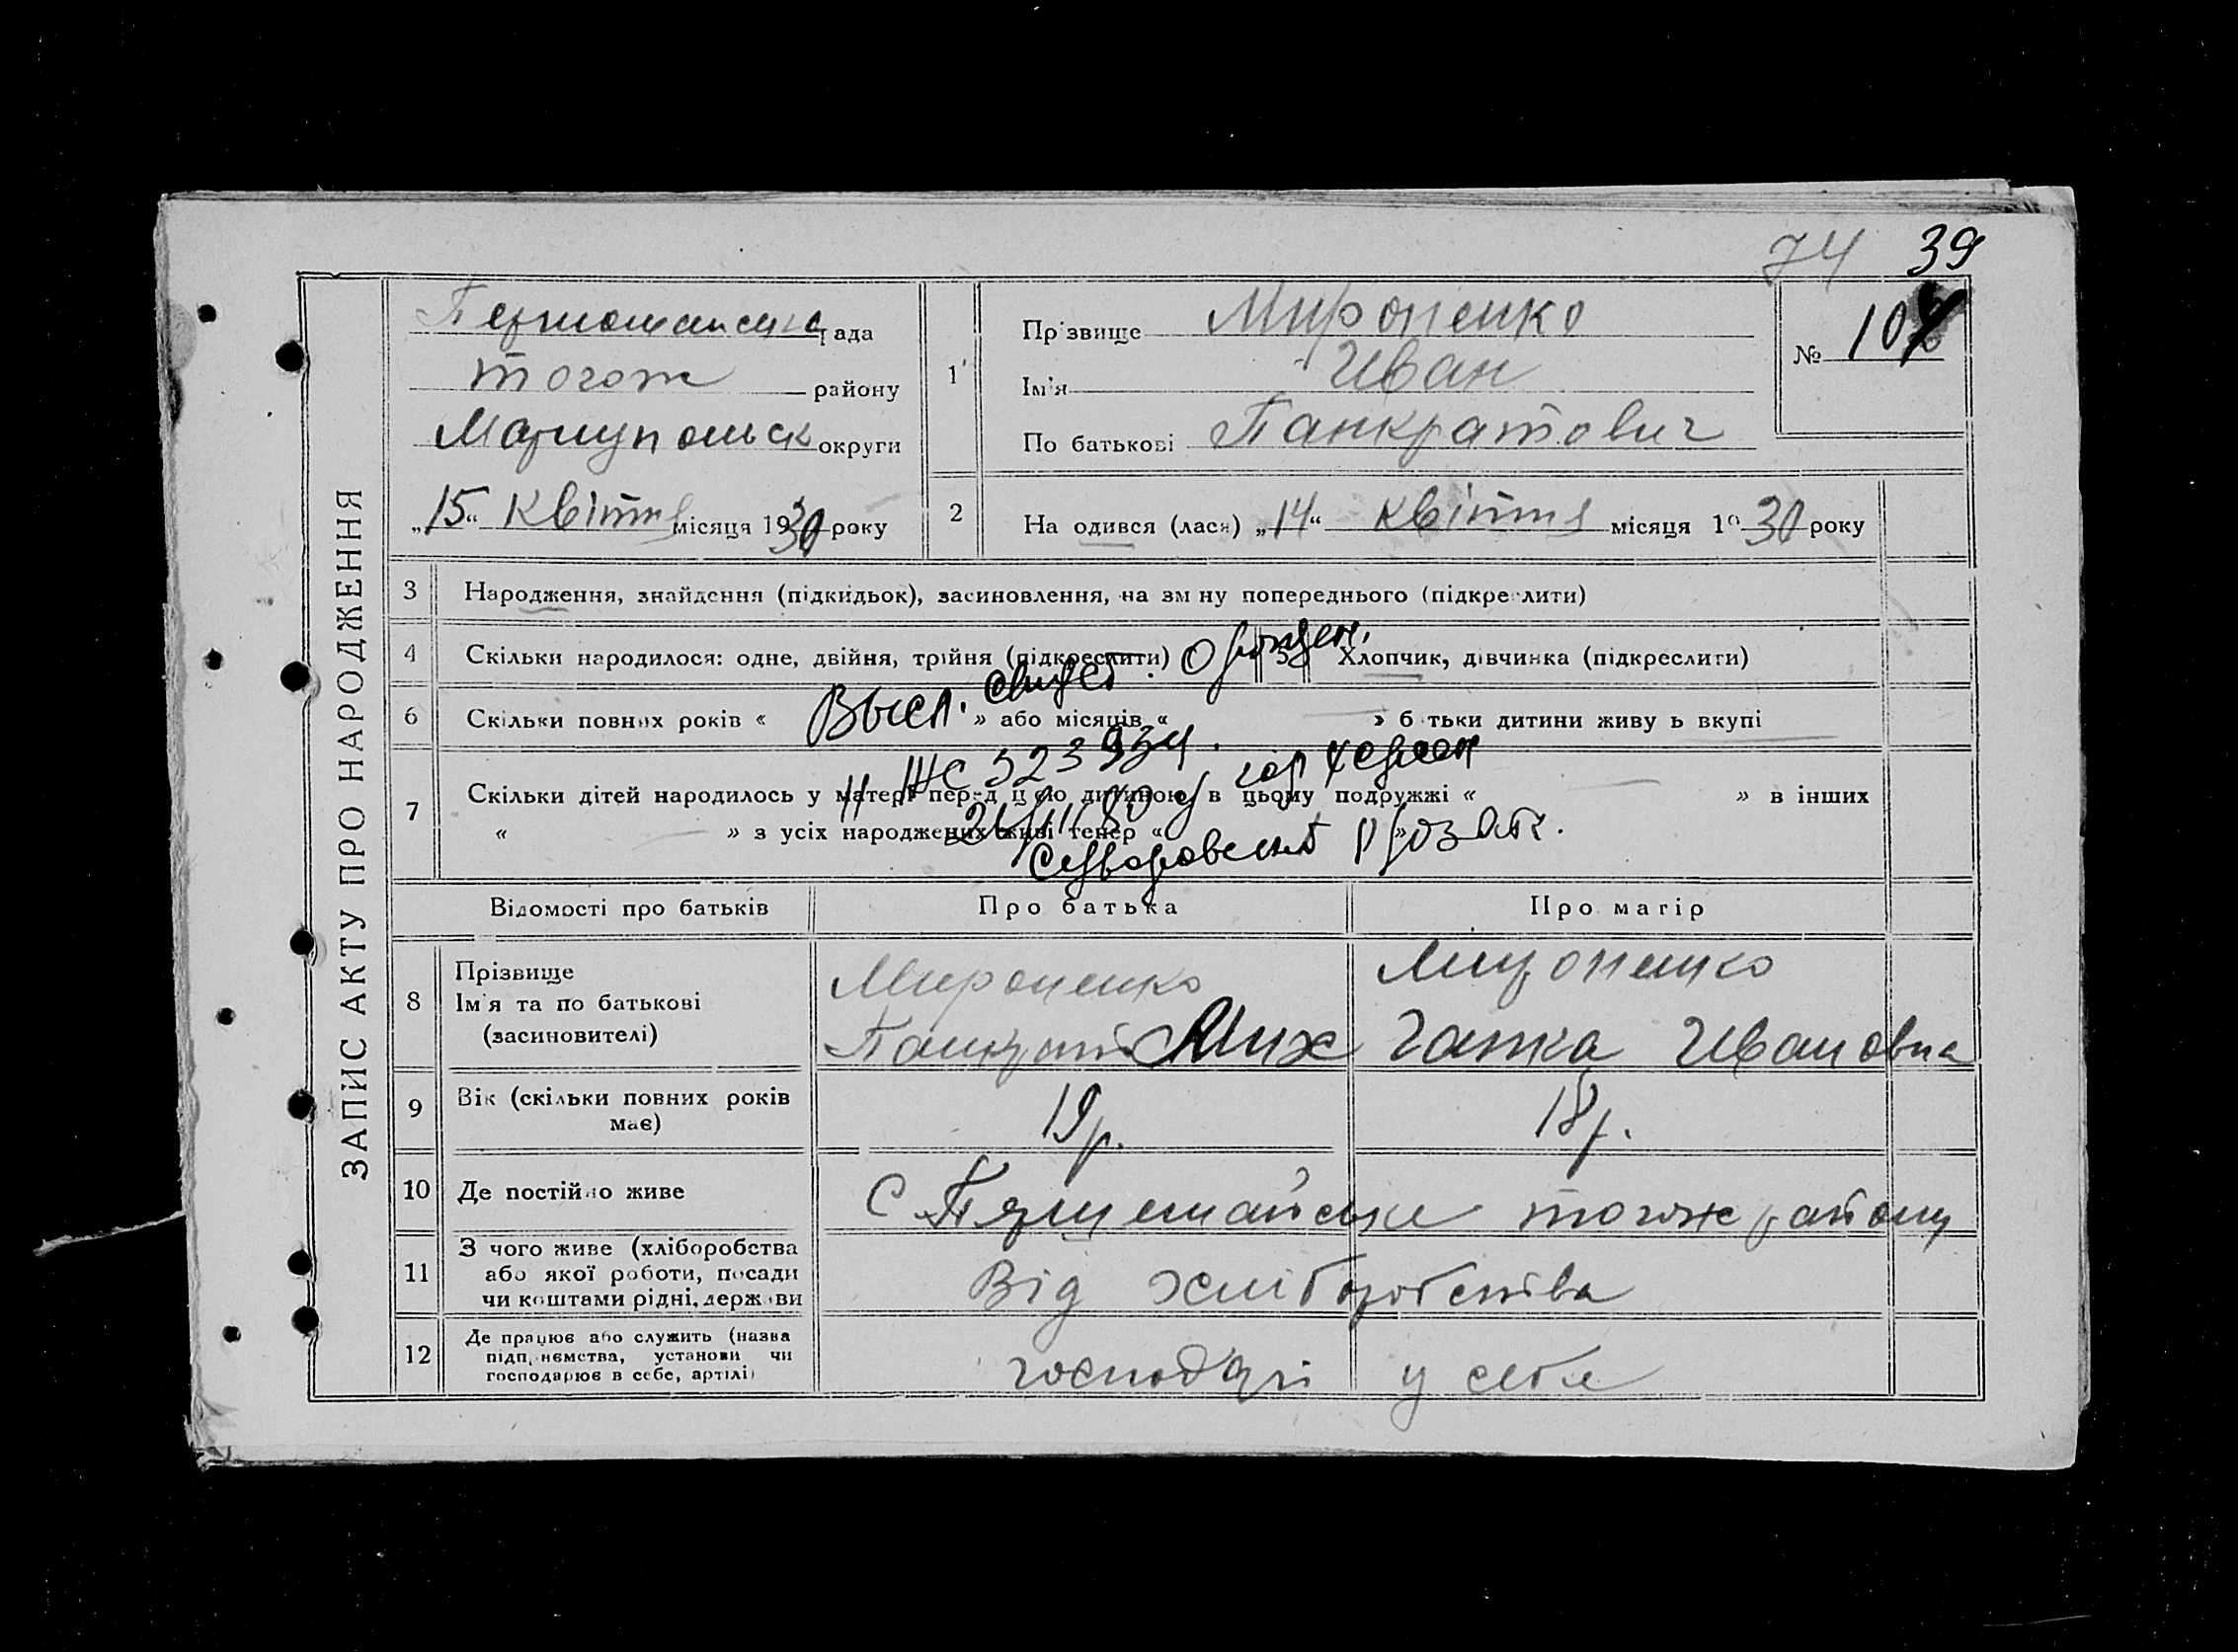 74 39
ЗАПИС АКТУ ПРО НАРОДЖЕННЯ
Першотравнева рада
тогож району
Маріупольськ округи
„15“ Квітня місяця 1930 року
1
Прізвище Мироненко
Ім'я Иван
По батькові Панкратович
№ 107
2 На одився (лася) „14“ Квітня місяця 1930 року
3 Народження, знайдення (підкидьок), засиновлення, на зм ну попереднього (підкреслити)
4 Скільки народилося: одне, двійня, трійня (підкреслити) 5 Хлопчик, дівчинка (підкреслити)
Высл. свидет. о рожден.
6 Скільки повних років « » або місяців « » б тьки дитини живу ь вкупі
II ЖС 523934.
7 Скільки дітей народилось у матері перед цією дитиною: в цьому подружжі « » в інших
« » з усіх народжених живі тепер « »
в гор Херсон
Суворовский р/озагс.
Відомості про батьків Про батька Про матір
8 Прізвище
Ім'я та по батькові
(засиновителі)
Мироненко
Панкрат Мих
Мироненко
Ганка Ивановна
9 Вік (скільки повних років має) 19р. 18р.
10 Де постійно живе с тогож району
11 З чого живе (хліборобства
або якої роботи, посади
чи коштами рідні, держави
Від хліборобства
12 Де працює або служить (назва
підприємства, установи чи
господарює в себе, артілі)
господарі у себе